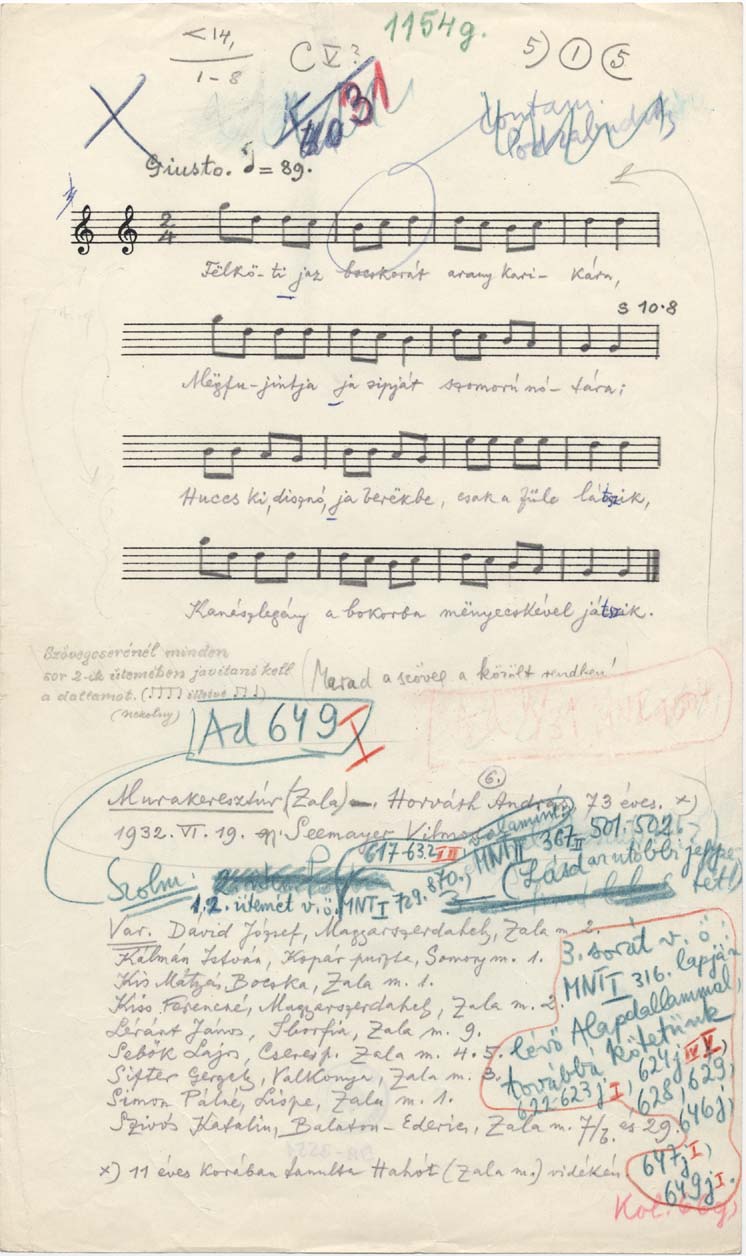 <14,
1-8
C V?
1154g.
5) 1 5
X
31
Giusto. = 89.
2
4
Félkö-ti jaz bocskorát arany kari- kára,
s 10·8
Mëgfu-jintja ja sipját szomorú nó- tára;
Huccs ki, disznó, ja berëkbe, csak a füle látszik,
Kanászlegény a bokorba mënyecskével játszik.
Szövegcserénél minden
sor 2-ik ütemében javítani kell
a dallamot. (♫♫ illetve ♫♩)
Marad a szöveg a közölt rendben!
Ad 649 I
6.
Murakeresztúr (Zala) Horváth András, 73 éves. x)
1932. VI. 19. Seemayer Vilmos
valamint
617-632 MNT II 367 II 501-502
Szolm:
(Lásd az utóbbi jegyze
tét)
1.2. ütemét v.ö. MNT I 729. 870.,
Var. Dávid József, Magyarszerdahely, Zala m. 2.
Kálmán István, Kopár puszta, Somogy m. 1.
Kis Mátyás, Bocska, Zala m. 1.
Kiss Ferencné, Magyarszerdahely, Zala m. 2.
Léránt János, Iborfia, Zala m. 9.
Sebők Lajos, Cseresp. Zala m. 4. 5.
Sifter Gergely, Valkonya, Zala m. 3.
Simon Pálné, Lispe, Zala m. 1.
Szivós Katalin, Balaton-Ederics, Zala m. 7/b. és 29.
3. sorát v. ö.
MNT I 316. lapján
levő Alapdallammal,
továbbá kötetünk
622-623j I, 624j IV V),
628, 629,
646j,
647j I,
649j I.
x) 11 éves korában tanulta Hahót (Zala m.) vidékén.